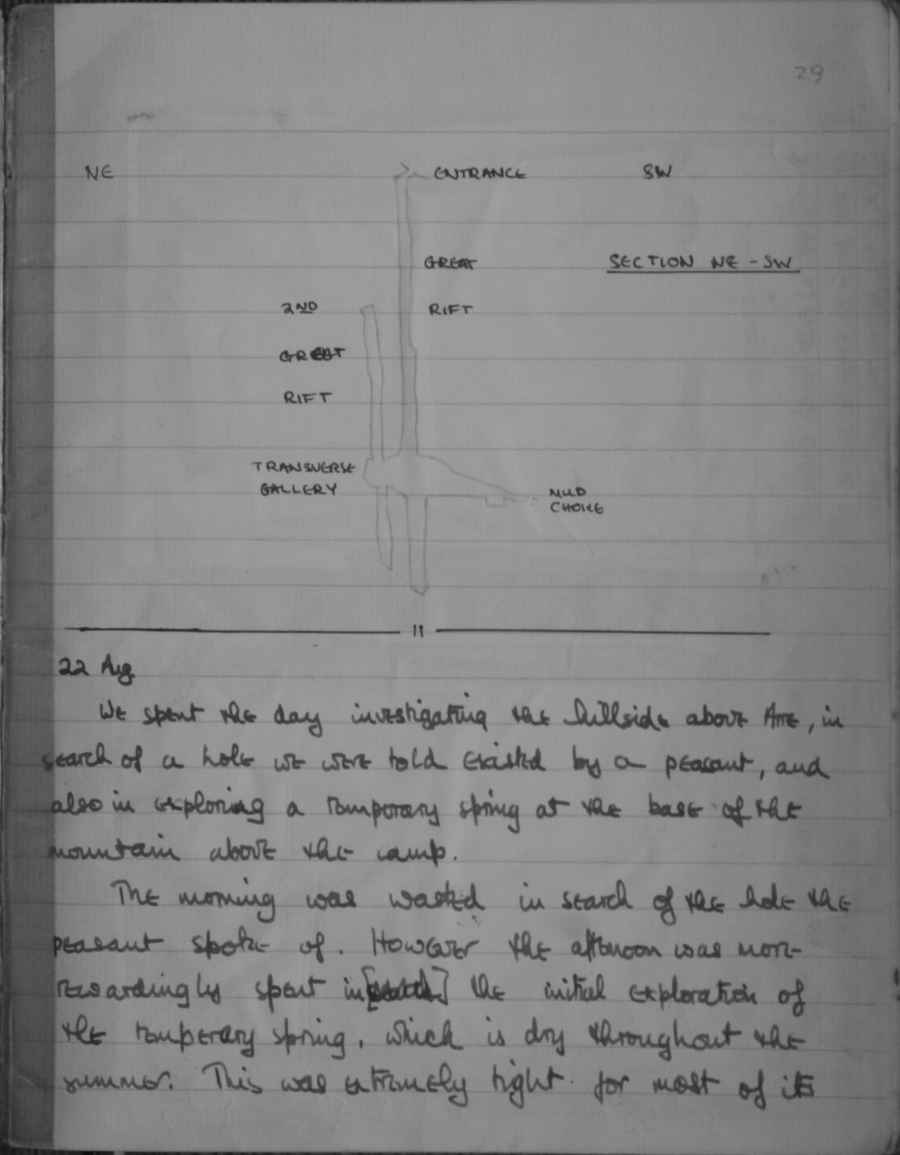 29
NE ENTRANCE SW
GREAT SECTION NE - SW
2ND RIFT
GREAT
RIFT
TRANSVERSE
GALLERY MUD
CHOKE
11
22 Aug
We spent the day investigating the hillside above Arre, in
search of a hole we were told existed by a peasant, and
also in exploring a temporary spring at the base of the
mountain above the camp.
The morning was wasted in search of the hole the
peasant spoke of. However the afternoon was more
rewardingly spent in the initial exploration of
the temporary spring, which is dry throughout the
summer. This was extremely tight for most of its